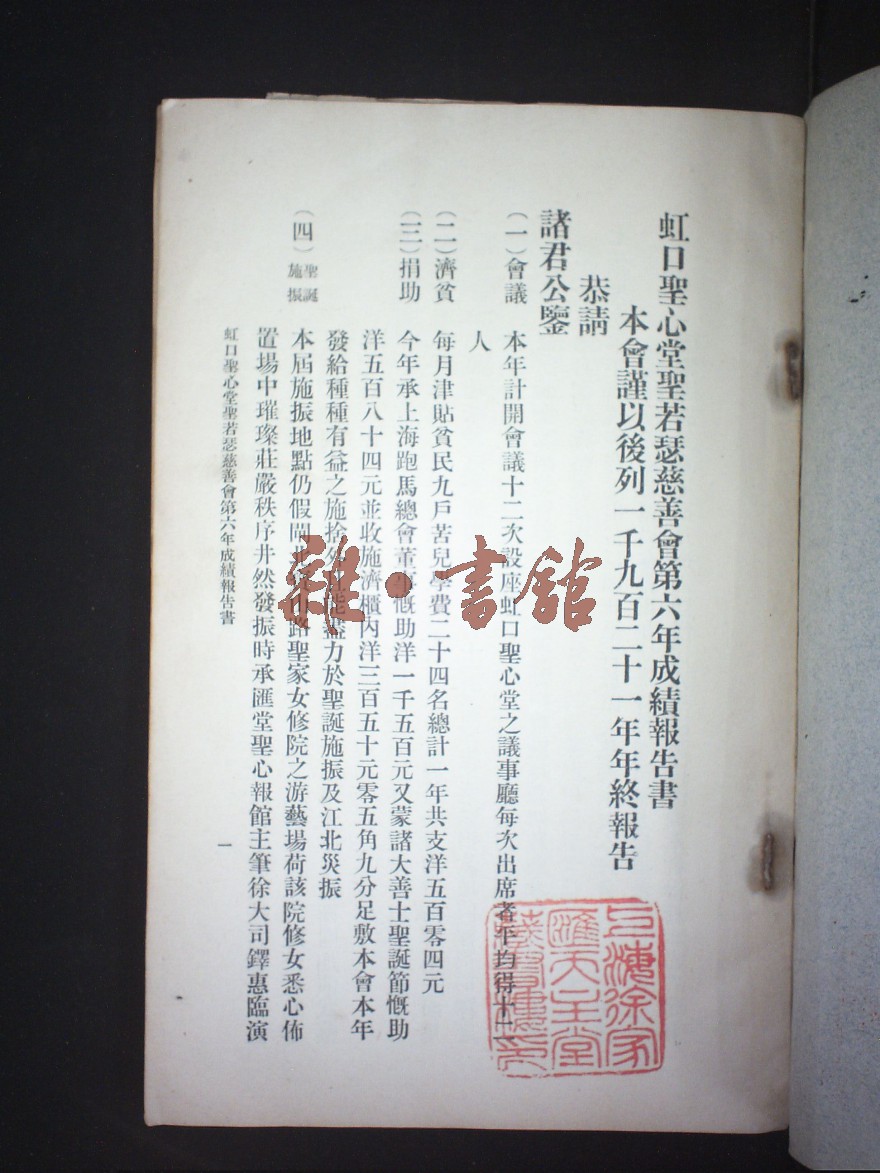 虹口聖心堂聖若瑟慈善會第六年成績報告書
本會謹以後列一千九百二十一年年終報告
恭請
諸君公鑒
(一)會議 本年計開會議十二次設座虹口聖心堂之議事廳每次出席者平均得十二
人
(二)濟貧 每月津貼貧民九戶苦兒學費二十四名總計一年共支洋五百零四元
(三)捐助 今年承上海跑馬總會董事慨助洋一千五百元又蒙諸大善士聖誕節慨助
洋五百八十四元並收施濟櫃內洋三百五十元零五角九分足敷本會本年
發給種種有益之施捨 能盡力於聖誕施振及江北災振
(四)聖誕施振 本屆施振地點仍假閘北 路聖家女修院之游藝場荷該院修女悉心佈
置場中璀璨莊嚴秩序井然發振時承匯堂聖心報館主筆徐大司鐸惠臨演
虹口聖心堂聖若瑟慈善會第六年成績報告書
一
雜·書館
上海徐家
匯天主堂
藏書樓印